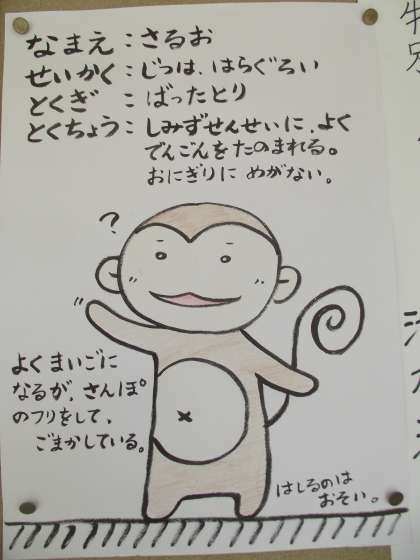 なまえ:さるお
せいかく:じつは、はらぐろい
とくぎ:ばったとり
とくちょう:しみずせんせいに、よく
でんごんをたのまれる。
おにぎりに めがない。
?
よくまいごに
なるが、さんぽ
のフリをして、
ごまかしている。
はしるのは
おそい。